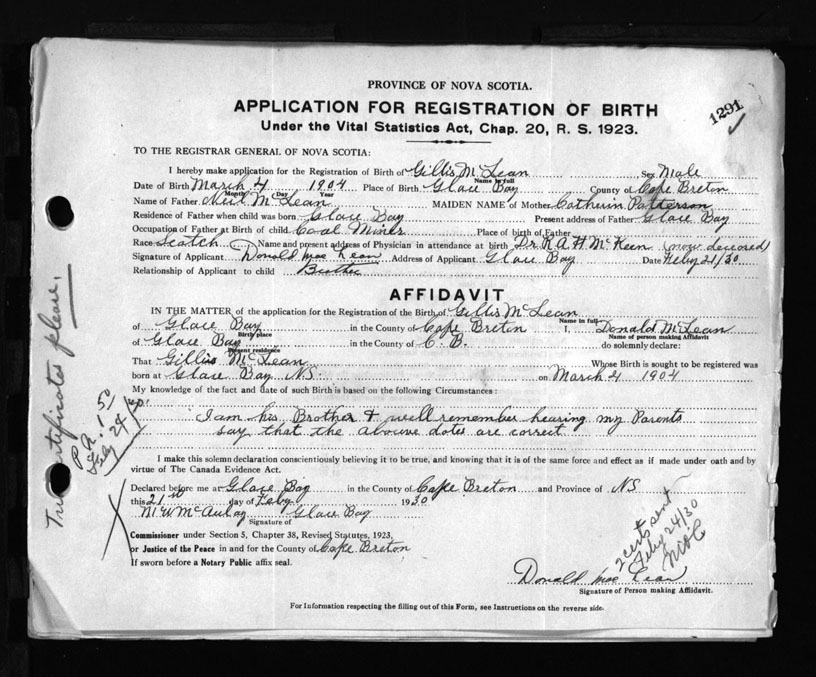 PROVINCE OF NOVA SCOTIA.
APPLICATION FOR REGISTRATION OF BIRTH
1291
Under the Vital Statistics Act, Chap. 20, R. S. 1923.
TO THE REGISTRAR GENERAL OF NOVA SCOTIA:
I hereby make application for the Registration of Birth of Gillis McLean Sex Male
Name in full
Date of Birth March 4 1904 Place of Birth Glace Bay County of Cape Breton
Month Day Year
Name of Father Neil McLean MAIDEN NAME of Mother Catherin Patterson
Residence of Father when child was born Glace Bay Present address of Father Glace Bay
Occupation of Father at Birth of child Coal Miner Place of birth of Father
Race Scotch Name and present address of Physician in attendance at birth Dr. R. A. H. McKeen (now deceased)
Signature of Applicant Donald Mac Lean Address of Applicant Glace Bay Date Feby 21/30
Relationship of Applicant to child Brother
AFFIDAVIT
IN THE MATTER of the application for the Registration of the Birth of Gillis McLean
Name in full
of Glace Bay in the County of Cape Breton I, Donald McLean
Birth place Name of person making Affidavit
of Glace Bay in the County of C. B. do solemnly declare:
Present residence
That Gillis McLean Whose Birth is sought to be registered was
born at Glace Bay NS on March 4 1904
My knowledge of the fact and date of such Birth is based on the following Circumstances:
I am his Brother & well remember hearing my Parents
say that the abouve dates are correct
I make this solemn declaration conscientiously believing it to be true, and knowing that it is of the same force and effect as if made under oath and by
virtue of The Canada Evidence Act.
Declared before me at Glace Bay in the County of Cape Breton and Province of NS
this 21st day of Feby 1930
M. W. McAulay Glace Bay
Signature of
Commissioner under Section 5, Chapter 38, Revised Statutes, 1923,
or Justice of the Peace in and for the County of Cape Breton
If sworn before a Notary Public affix seal.
Donald Mac Lean
Signature of Person making Affidavit.
For Information respecting the filling out of this Form, see Instructions on the reverse side.
Two certificates please.
Pd. 1.50
Feby 24/30.
2 certs sent
Feby 24/30